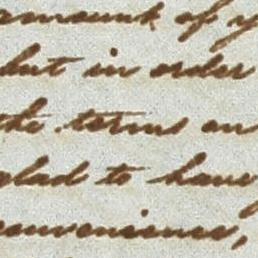 amount of y
but in order
the terms an
glad to have
convenience,